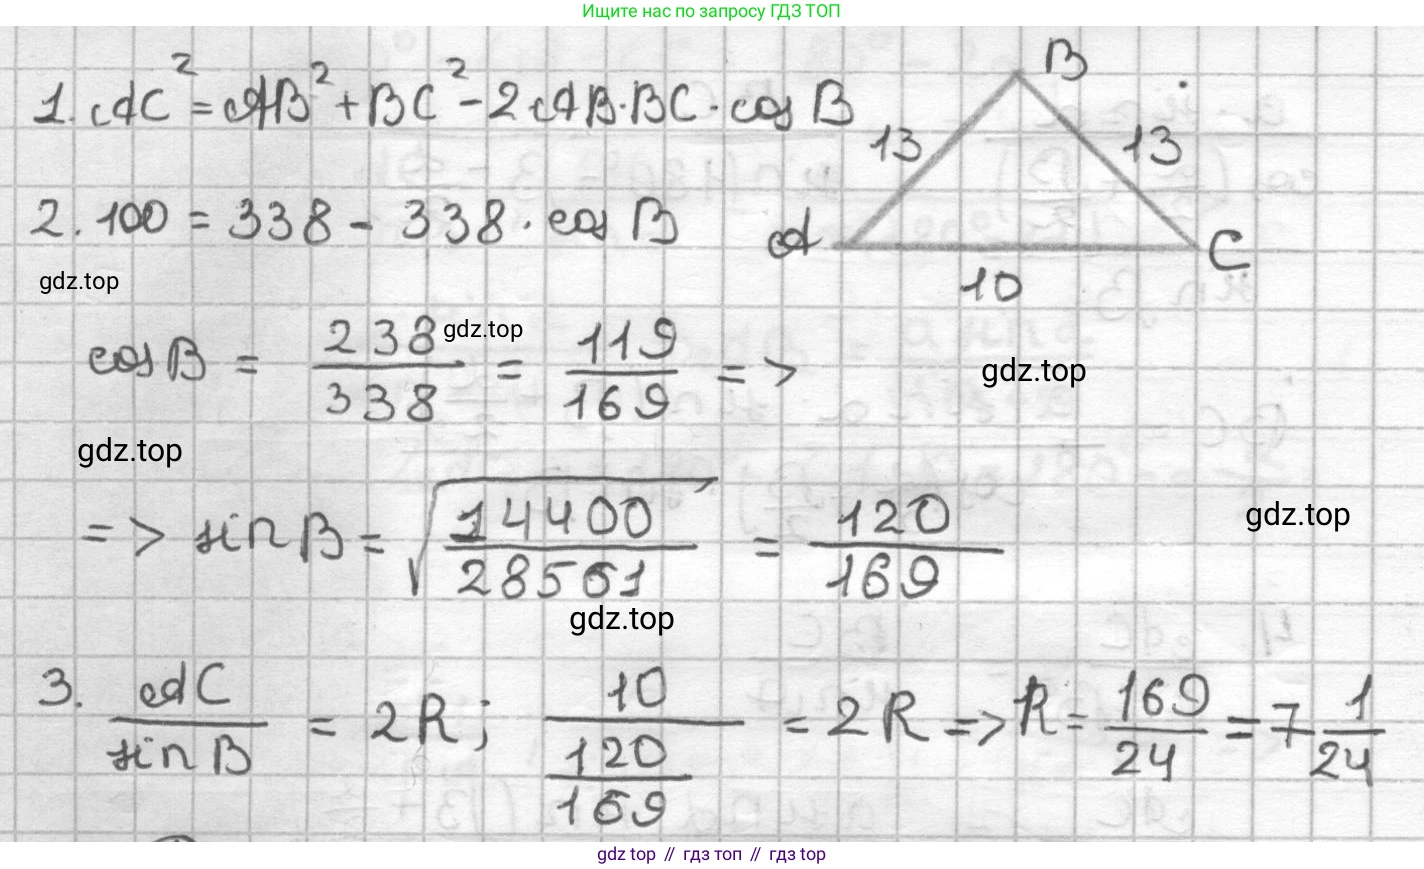 Ищите нас по запросу ГДЗ ТОП
1. AC² = AB² + BC² - 2 AB · BC · cos B
B
13
13
A
C
10
2. 100 = 338 - 338 · cos B
gdz.top
cos B = 238/338 = 119/169 =>
gdz.top
gdz.top
gdz.top
=> sin B = √(14400/28561) = 120/169
gdz.top
gdz.top
3. AC/sin B = 2R; 10/(120/169) = 2R => R = 169/24 = 7 1/24
gdz.top // гдз топ // гдз top